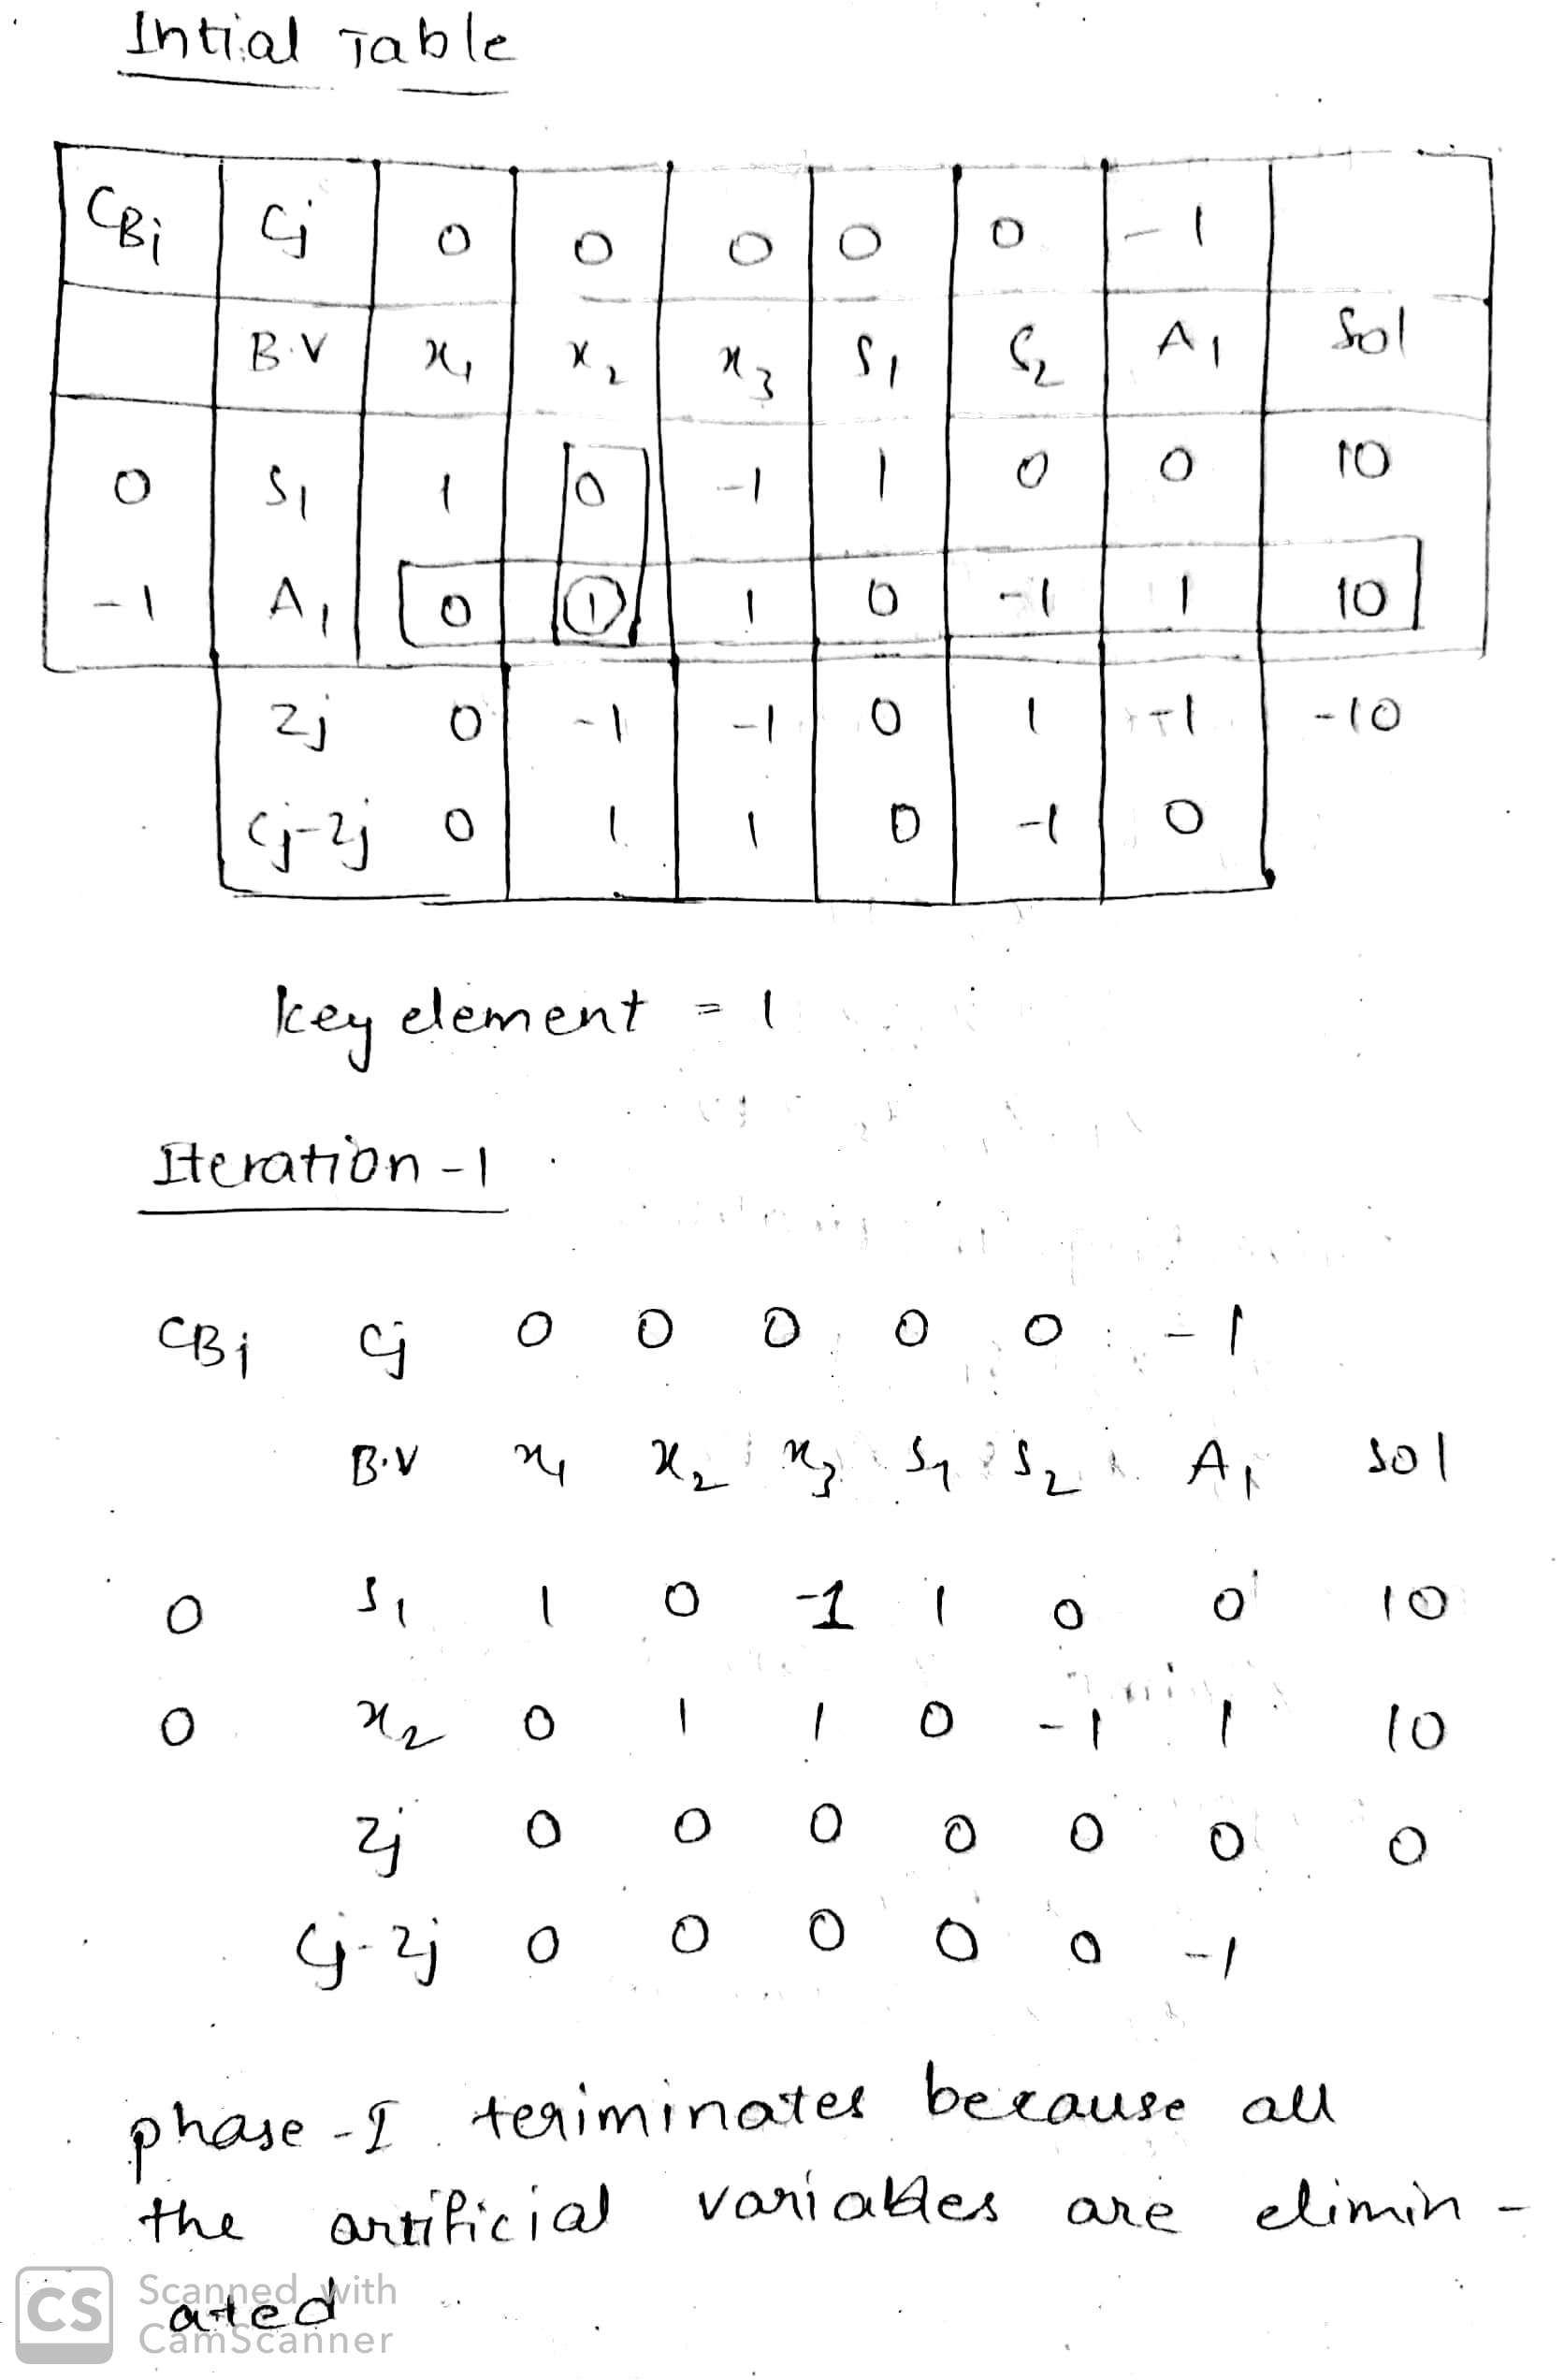 Intial Table
CBi Cj 0 0 0 0 0 -1
B.V x1 x2 x3 S1 S2 A1 Sol
0 S1 1 0 -1 1 0 0 10
-1 A1 0 1 1 0 -1 1 10
Zj 0 -1 -1 0 1 -1 -10
Cj-Zj 0 1 1 0 -1 0
key element = 1
Iteration-1
CBi Cj 0 0 0 0 0 -1
B.V x1 x2 x3 S1 S2 A1 Sol
0 S1 1 0 -1 1 0 0 10
0 x2 0 1 1 0 -1 1 10
Zj 0 0 0 0 0 0 0
Cj-Zj 0 0 0 0 0 -1
phase-I teriminates because all
the artificial variables are elimin-
ated
CS Scanned with
CamScanner